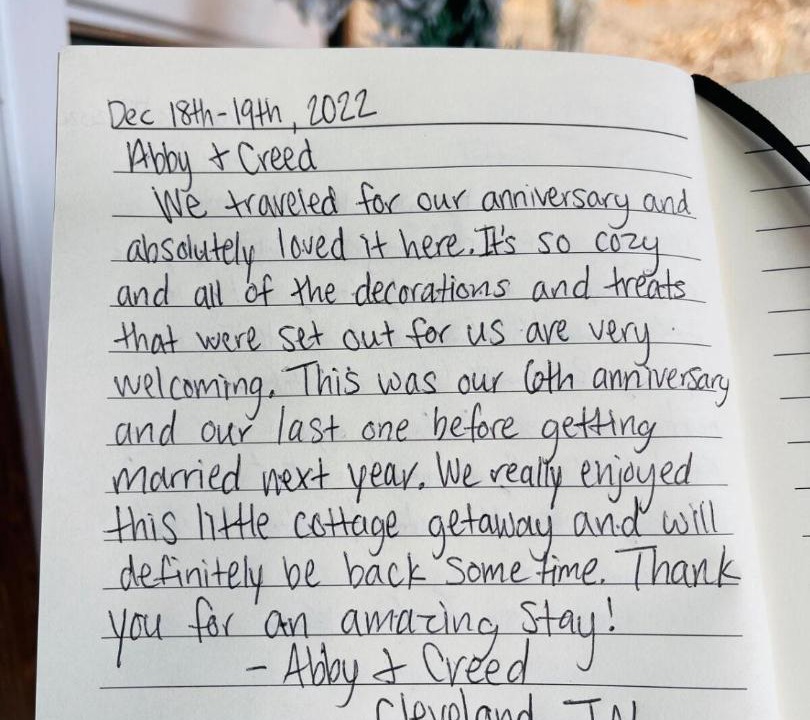 Dec 18th-19th, 2022
Abby + Creed
We traveled for our anniversary and
absolutely loved it here. It's so cozy
and all of the decorations and treats
that were set out for us are very
welcoming. This was our 6th anniversary
and our last one before getting
married next year. We really enjoyed
this little cottage getaway and will
definitely be back sometime. Thank
you for an amazing stay!
- Abby + Creed
Cleveland, TN